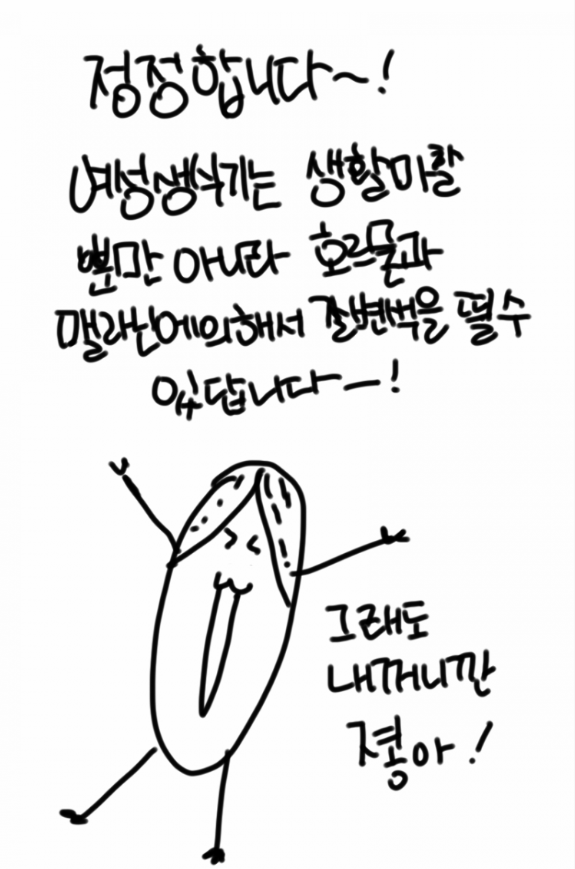 정정합니다~!
여성생식기는 생활마찰
뿐만 아니라 호르몬과
멜라닌에의해서 갈변색을 띌수
있답니다~!
그래도
내꺼니깐
죻아!